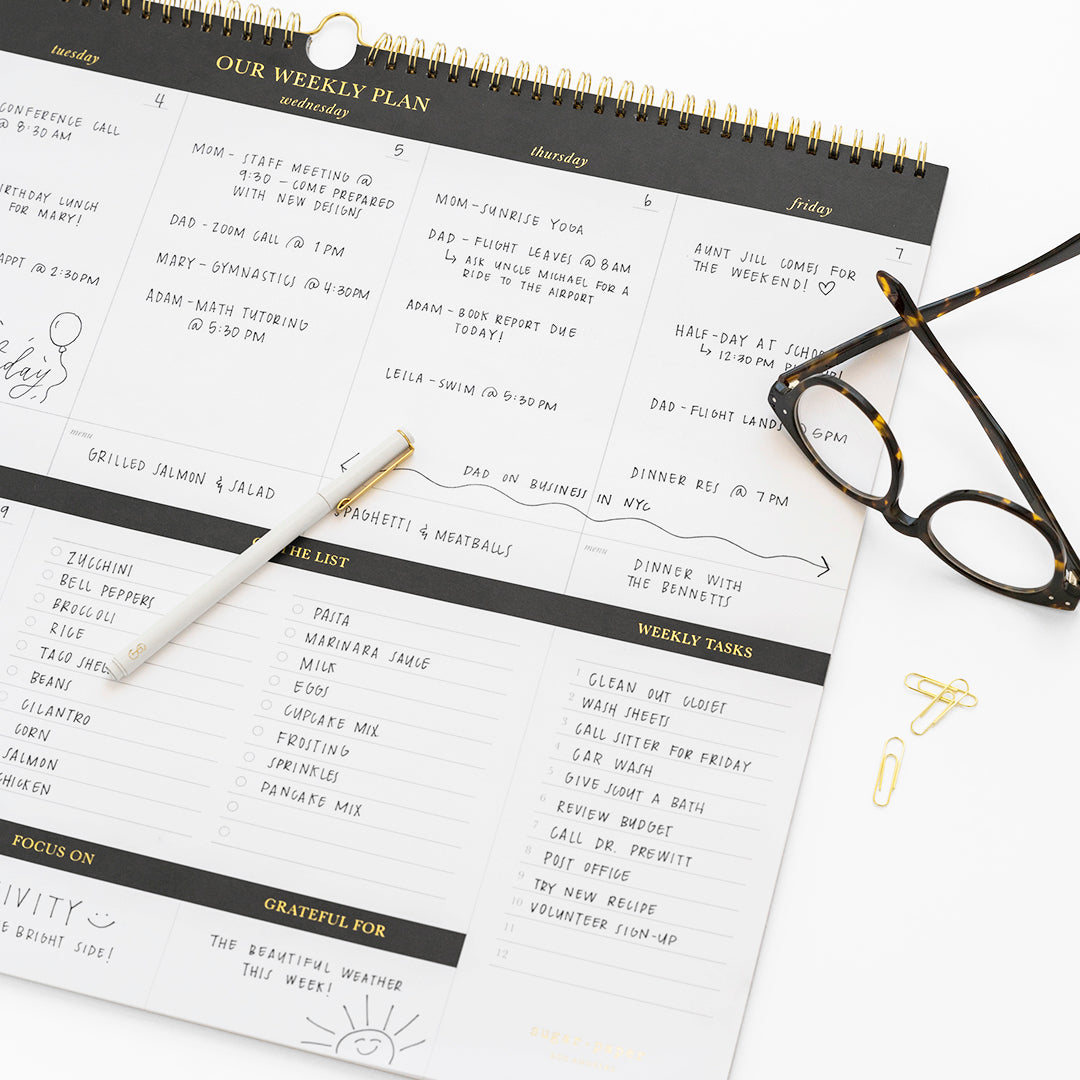 OUR WEEKLY PLAN
tuesday
4
CONFERENCE CALL
@ 8:30 AM
BIRTHDAY LUNCH
FOR MARY!
APPT @ 2:30PM
wednesday
5
MOM - STAFF MEETING @
9:30 - COME PREPARED
WITH NEW DESIGNS
DAD - ZOOM CALL @ 1 PM
MARY - GYMNASTICS @ 4:30PM
ADAM - MATH TUTORING
@ 5:30 PM
menu
GRILLED SALMON & SALAD
thursday
6
MOM - SUNRISE YOGA
DAD - FLIGHT LEAVES @ 8 AM
↳ ASK UNCLE MICHAEL FOR A
RIDE TO THE AIRPORT
ADAM - BOOK REPORT DUE
TODAY!
LEILA - SWIM @ 5:30 PM
DAD ON BUSINESS IN NYC
SPAGHETTI & MEATBALLS
friday
7
AUNT JILL COMES FOR
THE WEEKEND! ♡
HALF-DAY AT SCHOOL
↳ 12:30 PM
DAD - FLIGHT LANDS @ 5PM
DINNER RES @ 7 PM
menu
DINNER WITH
THE BENNETTS
9
THE LIST
ZUCCHINI
BELL PEPPERS
BROCCOLI
RICE
TACO
BEANS
CILANTRO
CORN
SALMON
CHICKEN
PASTA
MARINARA SAUCE
MILK
EGGS
CUPCAKE MIX
FROSTING
SPRINKLES
PANCAKE MIX
WEEKLY TASKS
1 CLEAN OUT CLOSET
2 WASH SHEETS
3 CALL SITTER FOR FRIDAY
4 CAR WASH
5 GIVE SCOUT A BATH
6 REVIEW BUDGET
7 CALL DR. PREWITT
8 POST OFFICE
9 TRY NEW RECIPE
10 VOLUNTEER SIGN-UP
11
12
FOCUS ON
BRIGHT SIDE!
GRATEFUL FOR
THE BEAUTIFUL WEATHER
THIS WEEK!